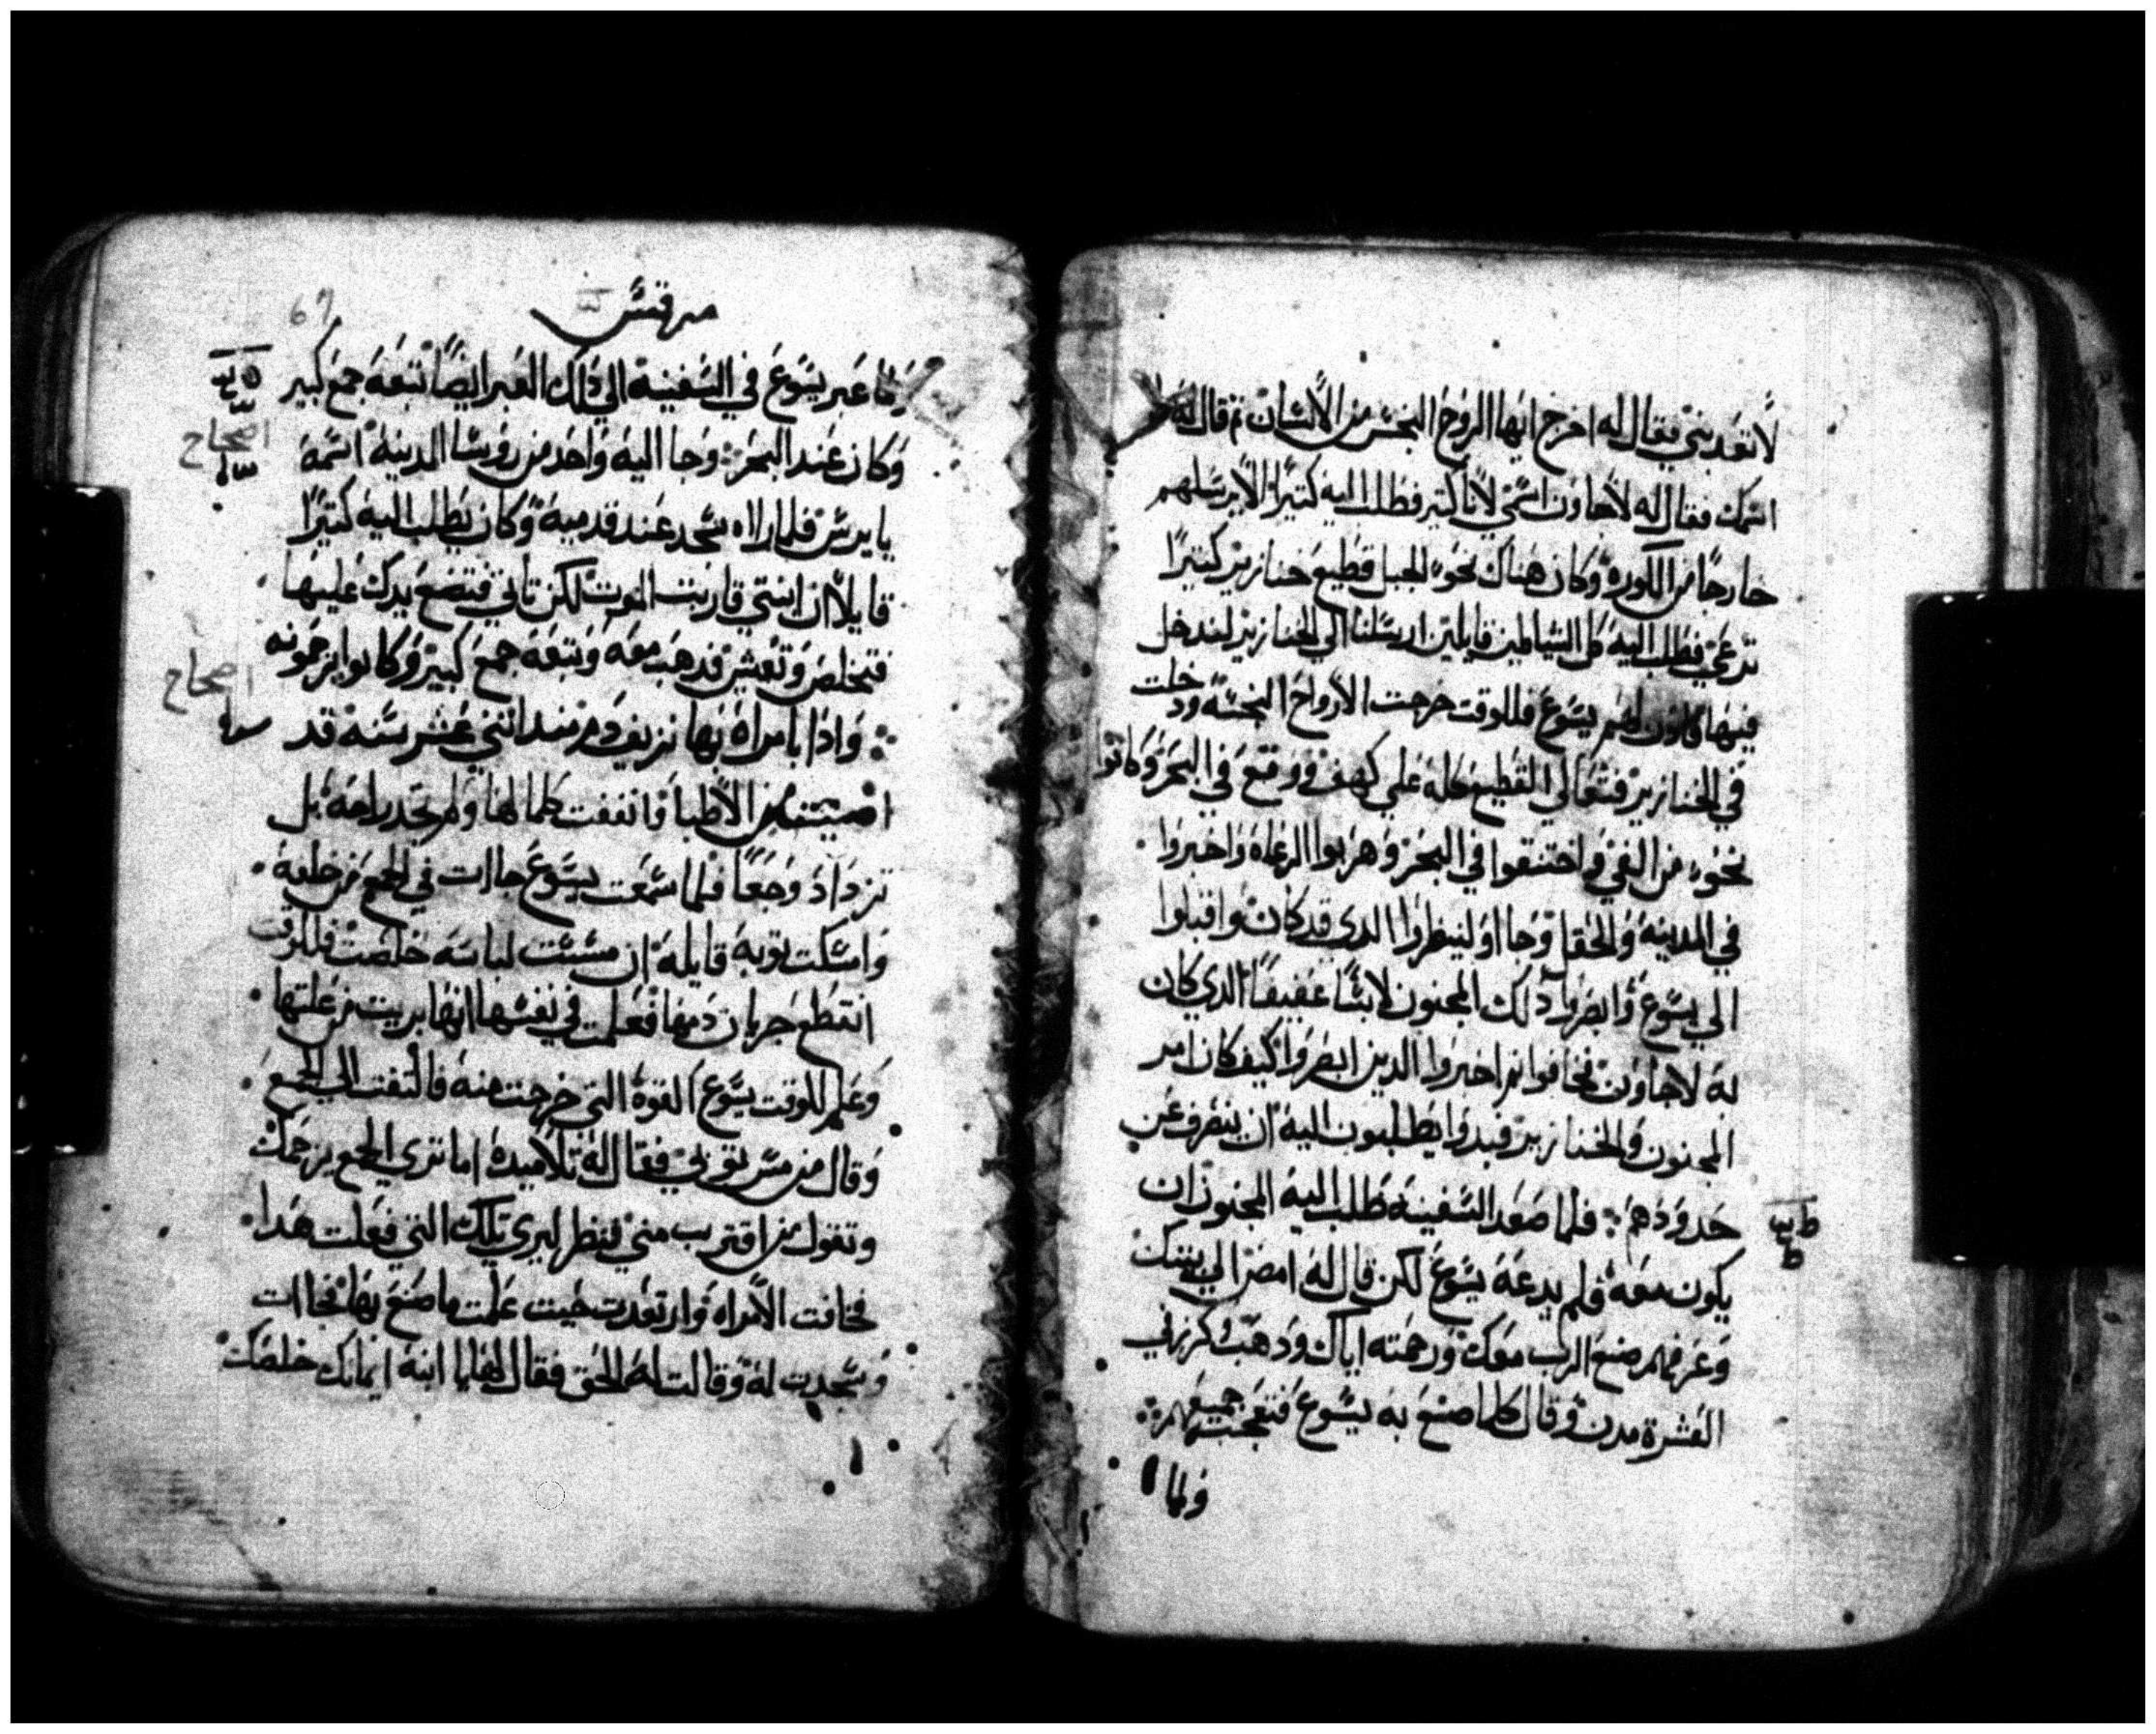 لاتعدبني فقال له اخرج ايها الروح النجس من الانسان ثم قال له
اسمك فقال له لاجاون اسمي لانا كتير فطلب اليه كتيرًا الا يرسلهم
خارجًا من الكوره وكان هناك نحو الجبل قطيع خنازير كتيرًا
ترعي فطلب اليه كل الشياطين قايلين ارسلنا الي الخنازير لندخل
فيها فادن لهم يسوع فللوقت خرجت الارواح النجسه ودخلت
في الخنازير فتعالي القطيع كله علي كهف ووقع في البحر وكانوا
نحو من الفي واختنقوا في البحر وهربوا الرعاة واخبروا
في المدينه والحقل وجااو لينظروا الدي قد كان واقبلوا
الي يسوع وابصروا دلك المجنون لابسًا عفيفًا الدي كان
له لاجاون فخافوا ثم اخبروا الدين ابصروا كيف كان امر
المجنون والخنازير فبدوا يطلبون اليه ان ينصرف عن
حدودهم فلما صعد السفينه طلب اليه المجنون ان
يكون معه فلم يدعه يسوع لكن قال له امض الي بيتك
وعرفهم صنع الرب معك ورحمته اياك ودهب وكرز في
العشرة مدن وقال كلما صنع به يسوع فتعجب جميعهم
ولما
مرقس
67
ولما عبر يسوع في السفينة الي دلك العبر ايضًا تبعه جمع كبير
وكان عند البحر وجا اليه واحد من روسا المدينه اسمه
اصحاح
يايرس فلما راه سجد عند قدميه وكان يطلب اليه كتيرًا
قايلا ان ابنتي قاربت الموت لكن تاتي فتضع يدك عليها
فتخلص وتعيش فدهب معه وتبعه جمع كبير وكانوا يزحمونه
اصحاح
وادا بامراه بها نزيف دم مند اثنتي عشر سنه قد
من الاطبا وانفقت كلما لها ولم تجد راحه بل
تزداد وجعًا فلما سمعت يسوع جاات في الجمع من خلفه
وامسكت توبه قايله ان مسست لباسه خلصت فللوقت
انقطع جريان دمها فعلمت في نفسها انها بريت من علتها
وعلم للوقت يسوع القوة التي خرجت منه فالتفت الي الجمع
وقال من مس توبي فقال له تلاميده اما تري الجمع يزحمك
وتقول من اقترب مني فنظر ليري تلك التي فعلت هدا
فخافت الامراه وارتعدت حيت علمت ما صنع بها فجاات
وسجدت له وقالت له الحق فقال لها يا ابنه ايمانك خلصك